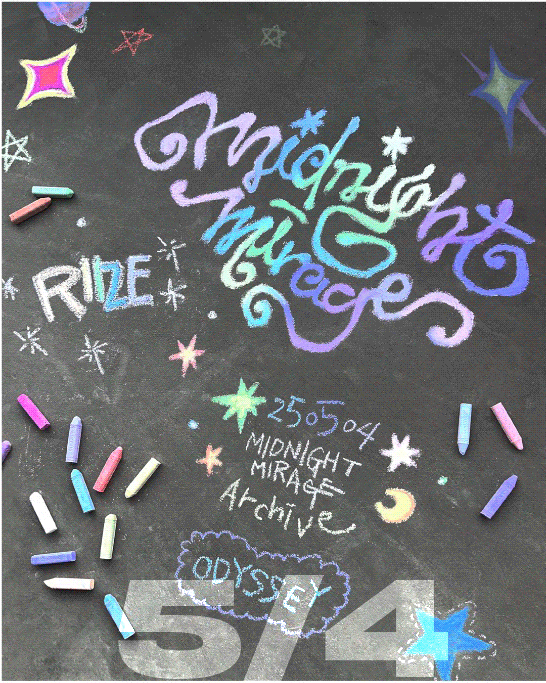 midnight
mirage
RIIZE
250504
MIDNIGHT
MIRAGE
Archive
ODYSSEY
5/4